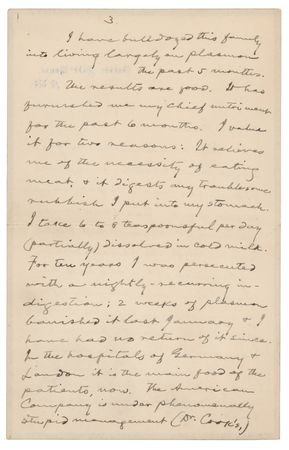 3
I have bulldozed this family
into living largely on plasmon
the past 5 months.
The results are good. It has
furnished me my chief nutriment
for the past 6 months. I value
it for two reasons: It relieves
me of the necessity of eating
meat, & it digests any troublesome
rubbish I put into my stomach.
I take 6 to 8 teaspoonsful per day
(partially) dissolved in cold milk.
For ten years I was persecuted
with a nightly-recurring in-
digestion; 2 weeks of plasmon
banished it last January & I
have had no return of it since.
In the hospitals of Germany &
London it is the main food of the
patients, now. The American
Company is under phenomenally
stupid management (Dr. Cook's,)